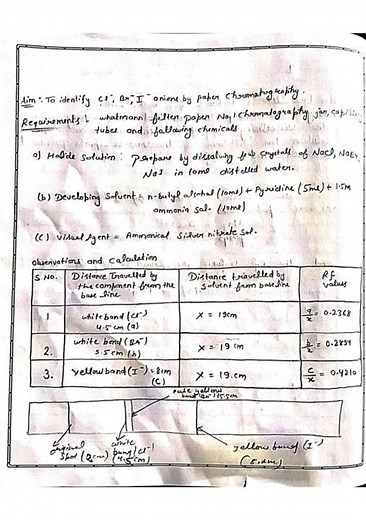 Aim :- To identify Cl⁻, Br⁻, I⁻ anions by paper Chromatography.
Requirements :- whatmann filter paper No 1, Chromatography jar, capillary
tubes and following chemicals
a) Halide Solution : Prepare by dissolving few crystals of NaCl, NaBr,
NaI in 10ml distilled water.
(b) Developing Solvent = n-butyl alcohol (10ml) + Pyridine (5ml) + 1.5M
ammonia sol. (10ml)
(c) Visual Agent = Ammonical Silver nitrate sol.
observations and Calculation
S No. Distance Travelled by the component from the base line Distance travelled by Solvent from baseline RF values
1 white band (Cl⁻) 4.5 cm (a) X = 19cm a/x = 0.2368
2. white band (Br⁻) 5.5 cm (b) X = 19 cm b/x = 0.2894
3. yellow band (I⁻) = 8cm (c) X = 19.cm c/x = 0.4210
pale yellow
band (Br⁻) (5.5cm)
original
Spot (2cm)
white
band (Cl⁻)
(4.5cm)
yellow band (I⁻)